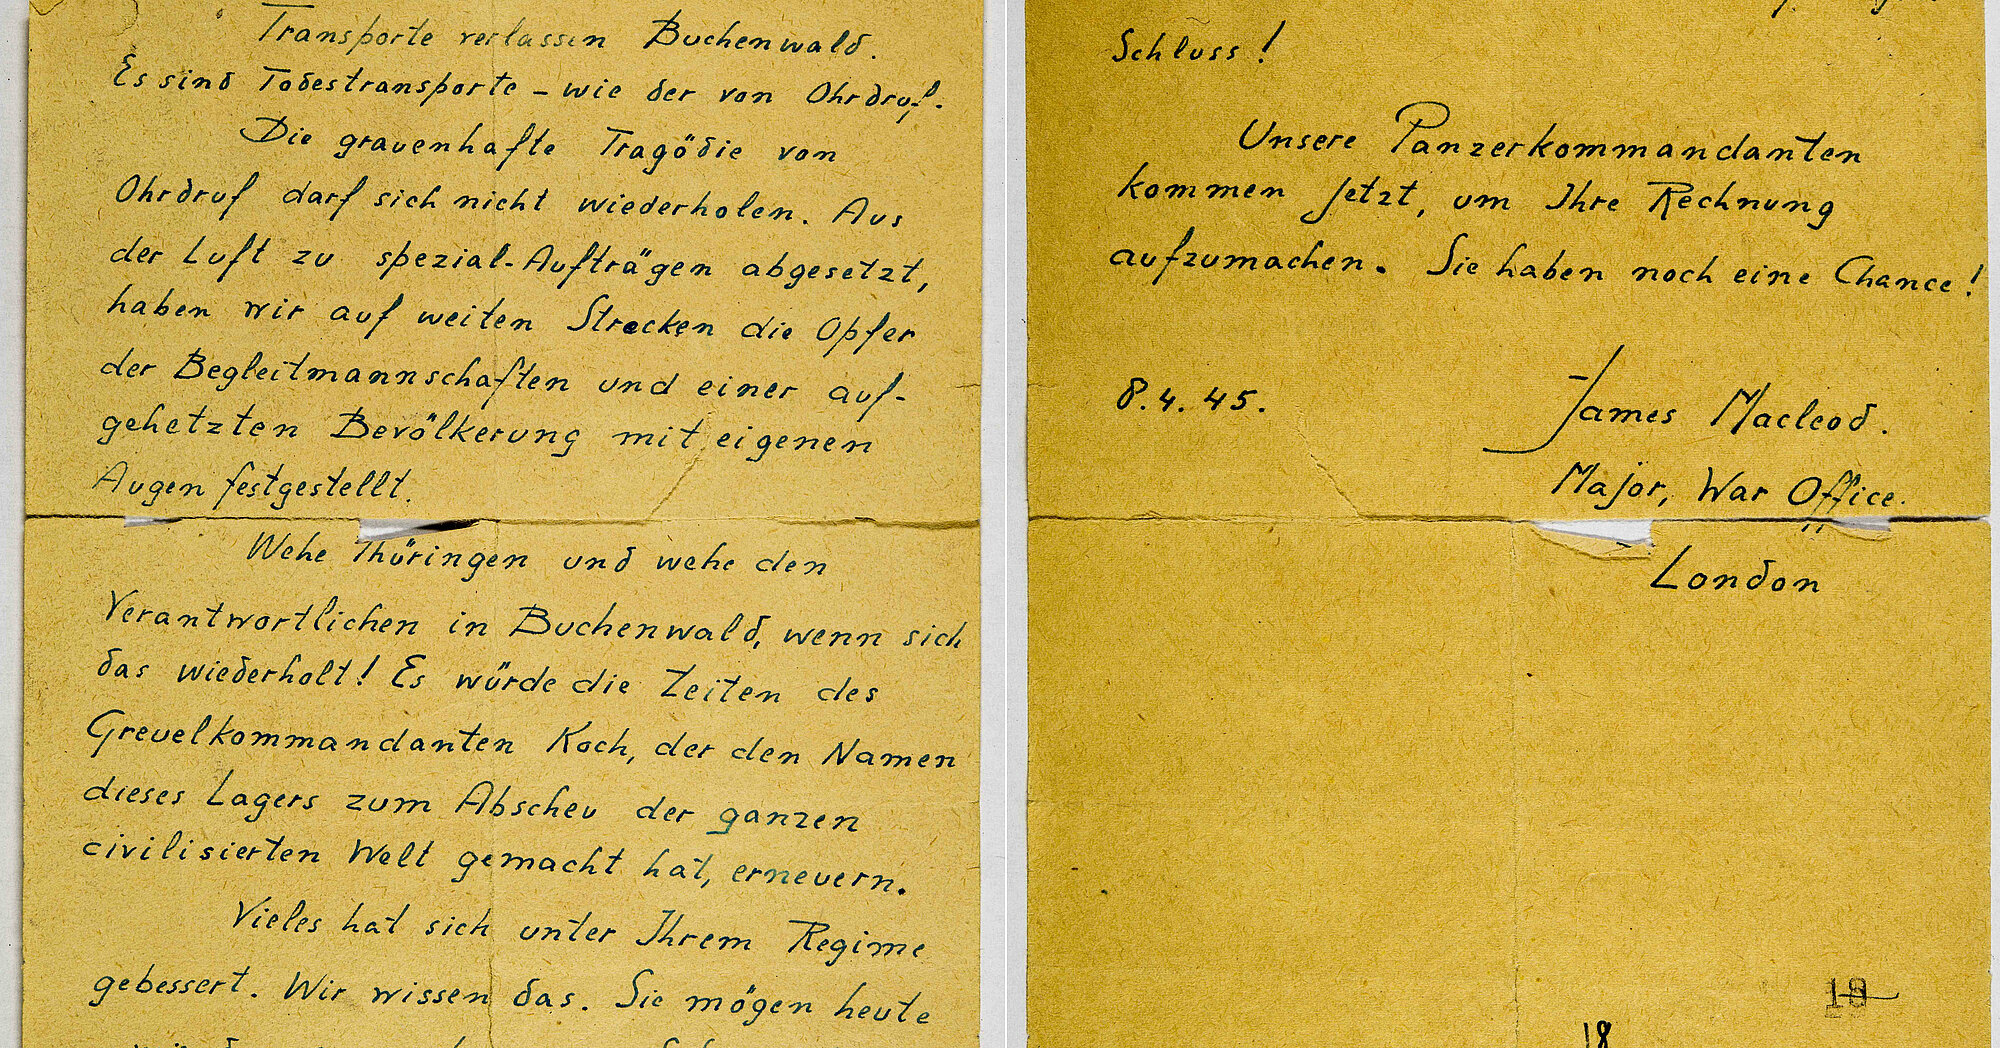 Transporte verlassen Buchenwald.
Es sind Todestransporte – wie der von Ohrdruf.
Die grauenhafte Tragödie von
Ohrdruf darf sich nicht wiederholen. Aus
der Luft zu spezial-Aufträgen abgesetzt,
haben wir auf weiten Strecken die Opfer
der Begleitmannschaften und einer auf-
gehetzten Bevölkerung mit eigenen
Augen festgestellt.
Wehe Thüringen und wehe den
Verantwortlichen in Buchenwald, wenn sich
das wiederholt! Es würde die Zeiten des
Greuelkommandanten Koch, der den Namen
dieses Lagers zum Abscheu der ganzen
civilisierten Welt gemacht hat, erneuern.
Vieles hat sich unter Ihrem Regime
gebessert. Wir wissen das. Sie mögen heute
Schluss!
Unsere Panzerkommandanten
kommen jetzt, um Ihre Rechnung
aufzumachen. Sie haben noch eine Chance!
8.4.45.
James Macleod.
Major, War Office.
London
18
18